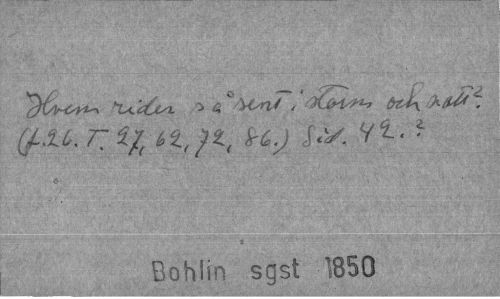 Hvem rider så sent i storm och natt?
(f.26. T. 27, 62, 72, 86.) Sid. 42.?
Bohlin sgst 1850